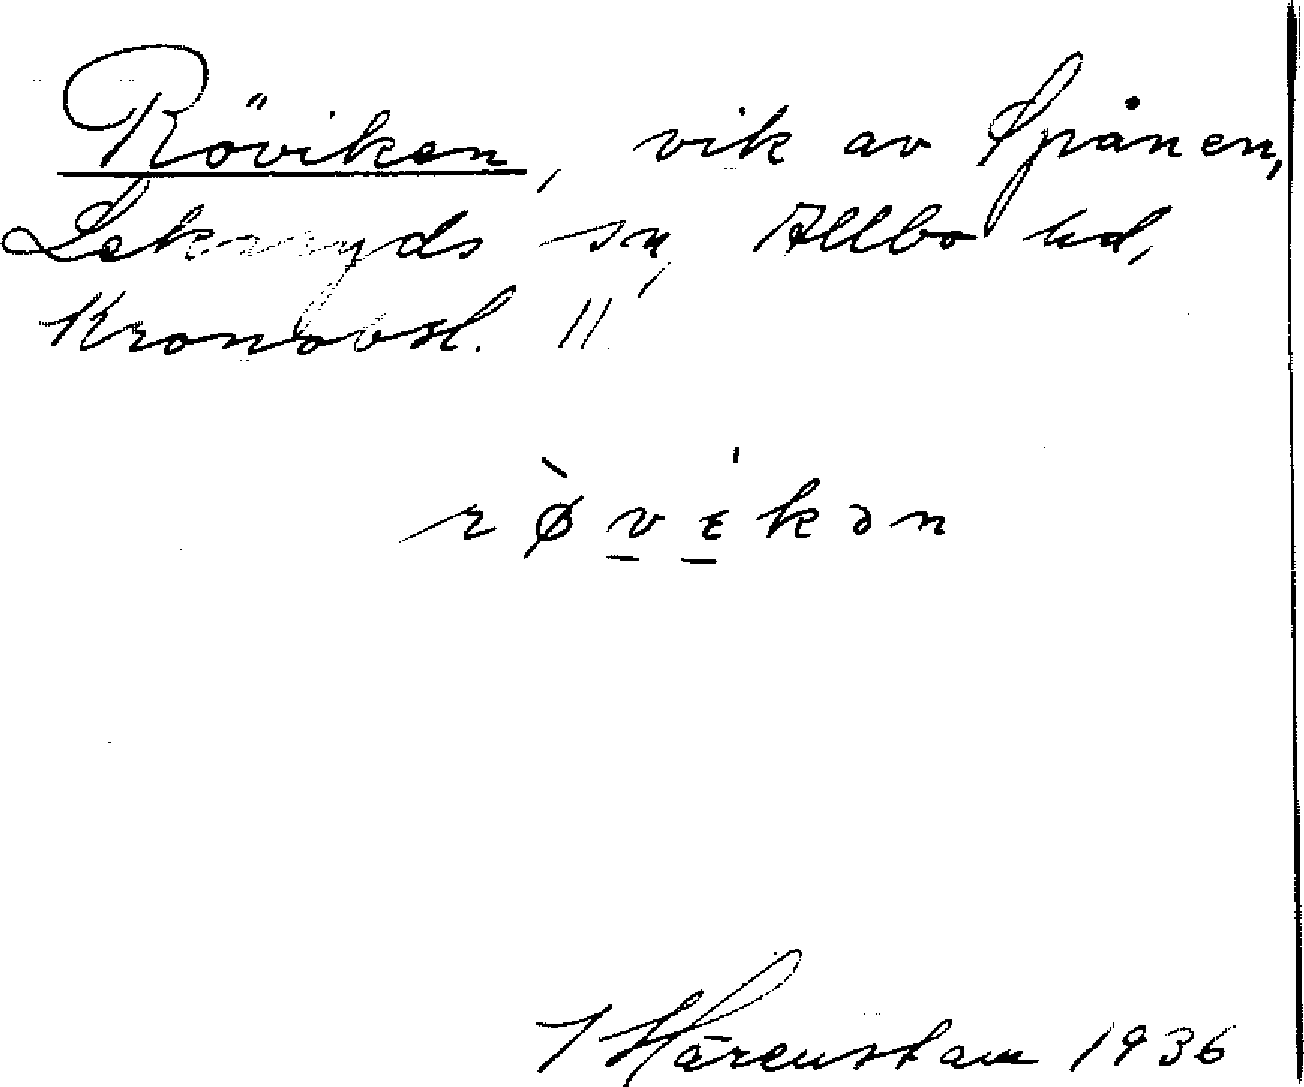 Röviken, vik av Spånen,
Lekaryds sn, Allbo hd,
Kronobsl. 11
rø̀vikən
J Hårenstam 1936